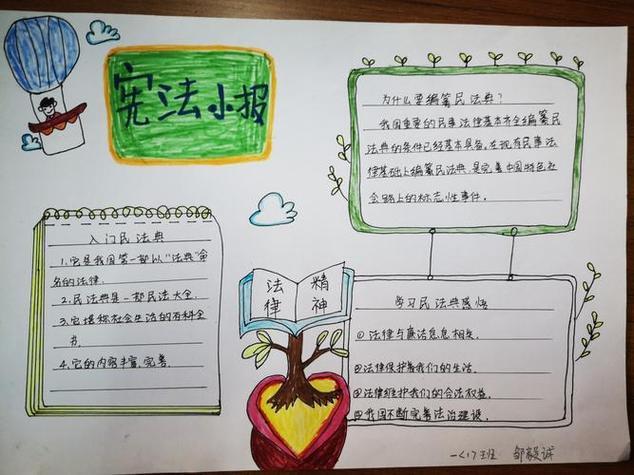 宪法小报
为什么要编纂民法典?
我国重要的民事法律基本齐全编纂民
法典的条件已经基本具备,在现有民事法
律基础上编纂民法典,是完善中国特色社
会路上的标志性事件。
入门民法典
1.它是我国第一部以"法典"命
名的法律.
2.民法典是一部民法大全.
3.它堪称社会生活的百科全
书
4.它的内容丰富,完善.
法律
精神
学习民法典感悟
①法律与廉洁息息相关.
②法律保护着我们的生活.
③法律维护我们的合法权益.
④我国不断完善法治建设.
一<1>班 邹毅诚